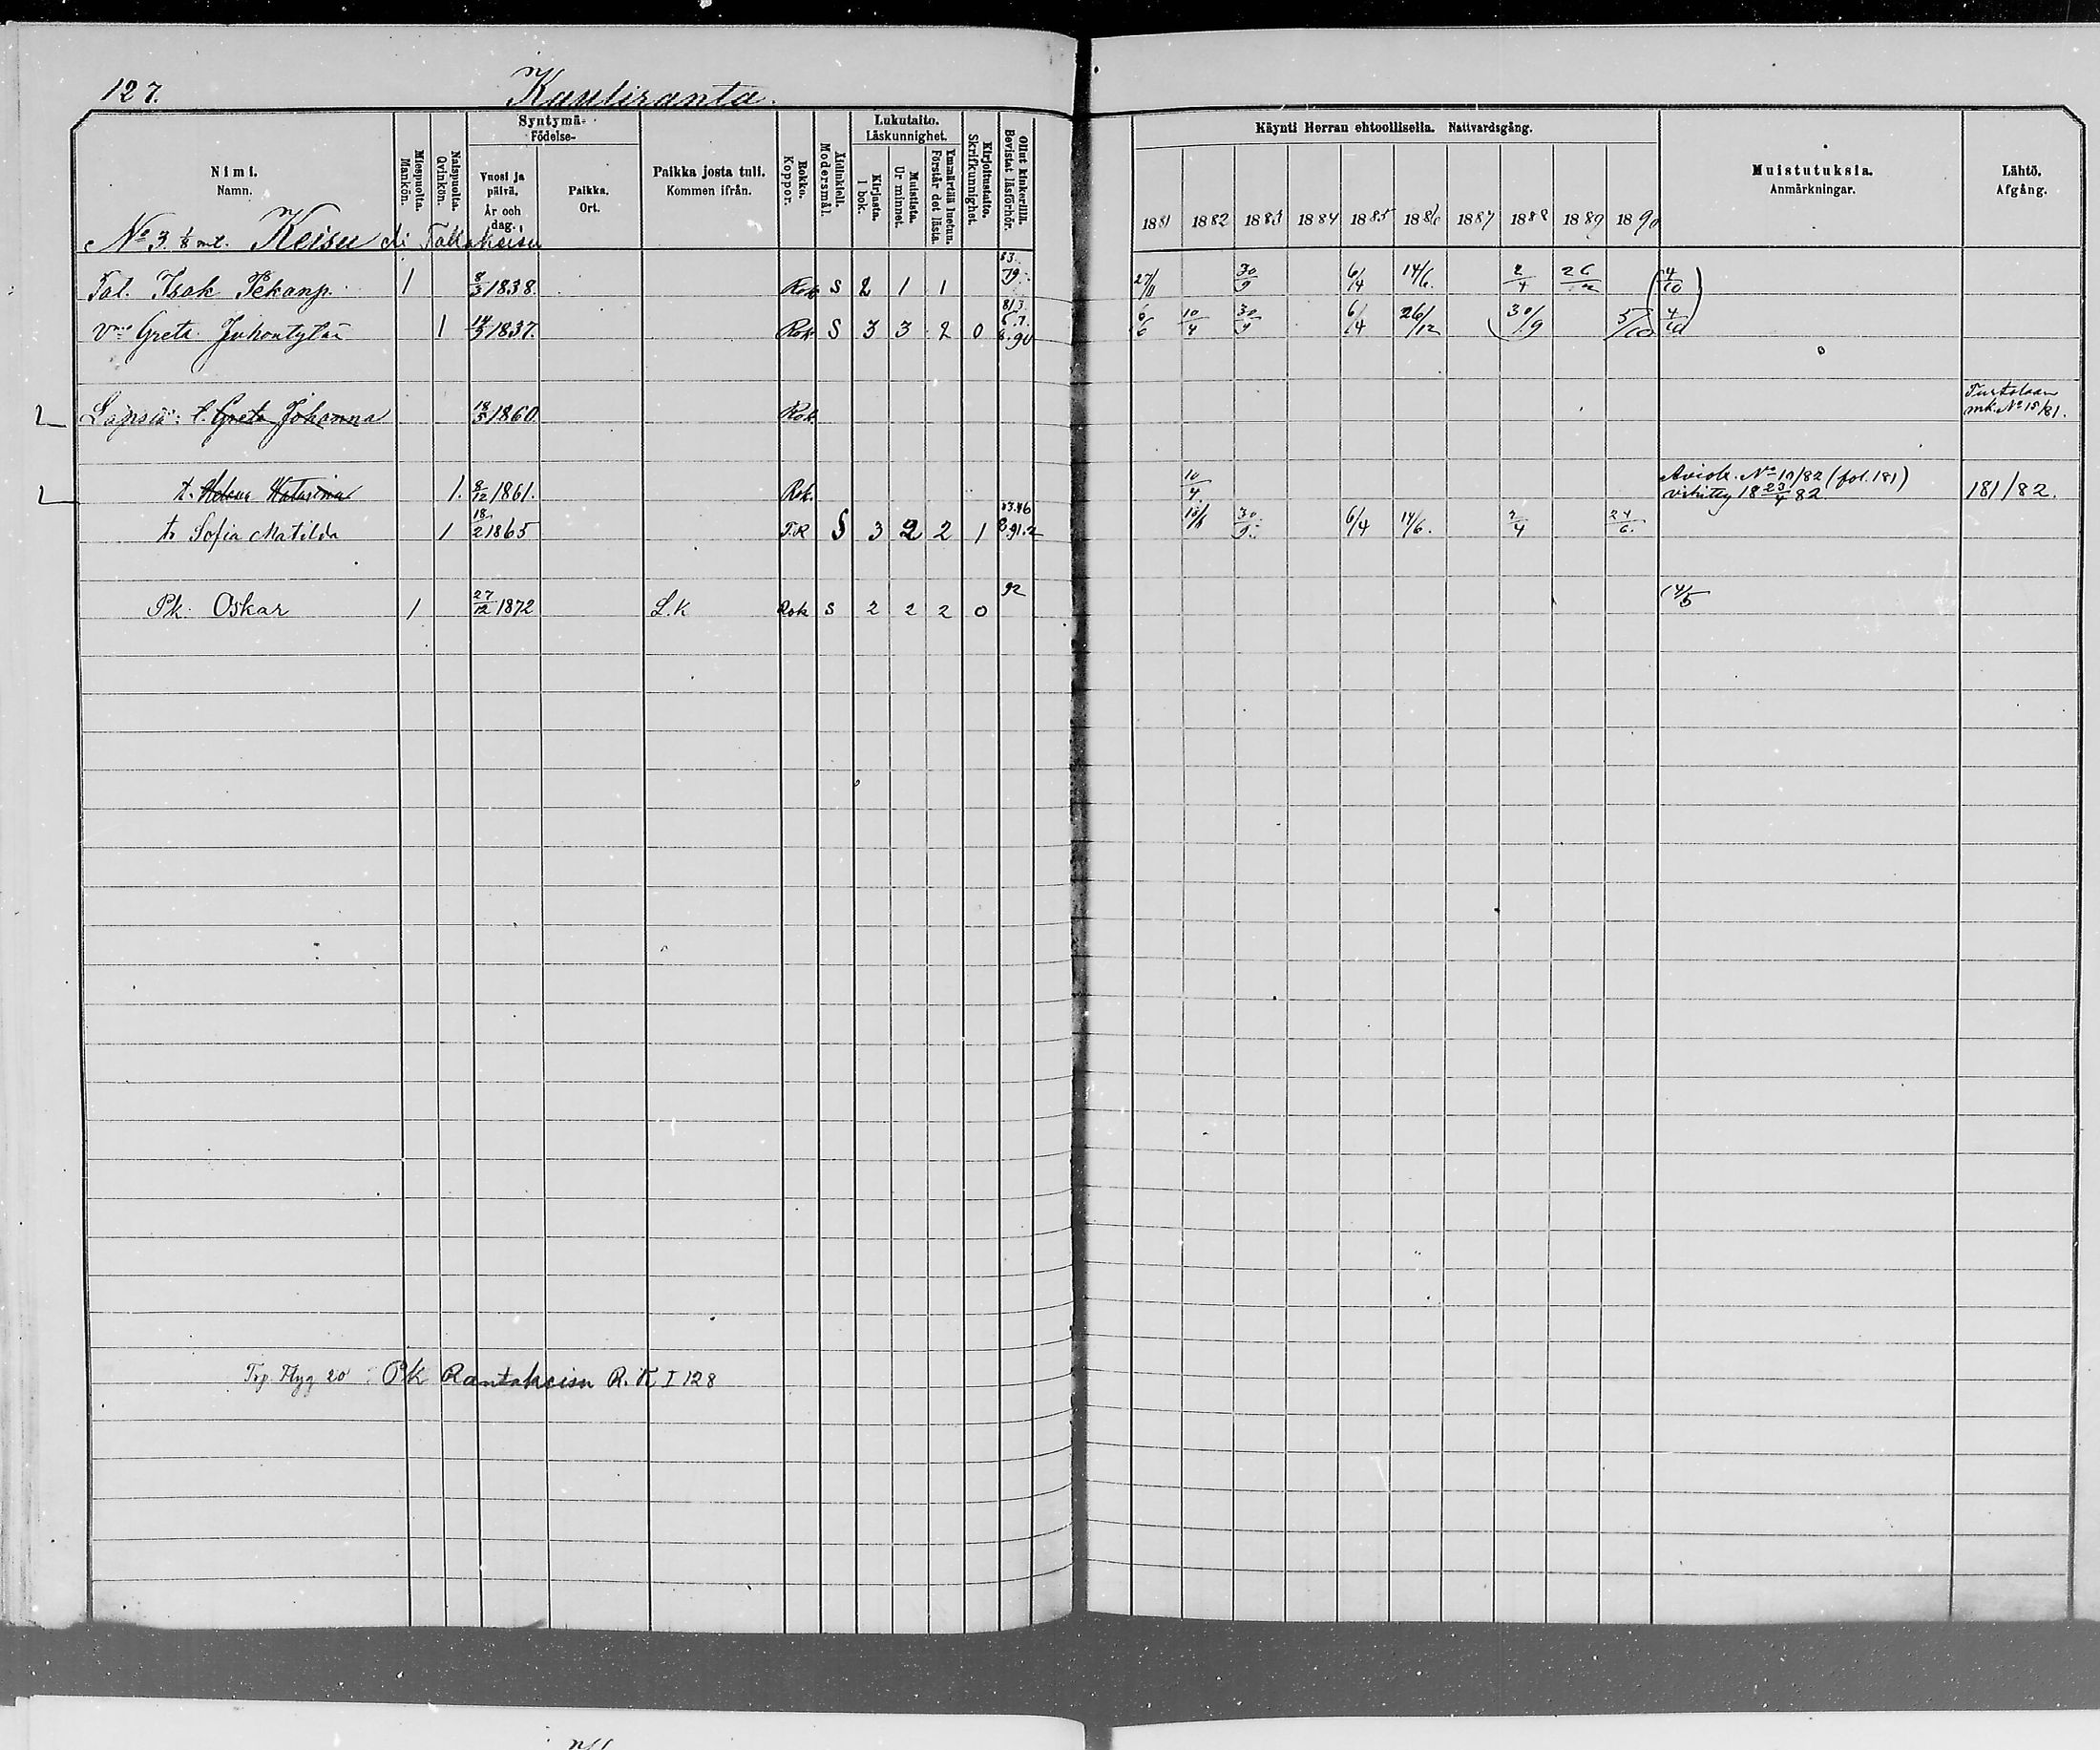 127. Kauliranta.
Syntymä- Födelse-
Lukutaito. Läskunnighet.
Käynti Herran ehtoollisella. Nattvardsgång.
Nimi. Namn.
Miespuolta. Mankön.
Naispuolta. Qvinkön.
Vuosi ja päivä. År och dag.
Paikka. Ort.
Paikka josta tuli. Kommen ifrån.
Rokko. Koppor.
Äidinkieli. Modersmål.
Kirjasta. I bok.
Muistista. Ur minnet.
Ymmärtää luetun. Förstår det lästa.
Kirjoitustaito. Skrifkunnighet.
Ollut kinkerillä. Bevistat läsförhör.
1881 1882 1883 1884 1885 1886 1887 1888 1889 1890
Muistutuksia. Anmärkningar.
Lähtö. Afgång.
No 3. 1/8 mt. Keisu eli Talkokeisu
Tal. Isak Pekanp. 1 8/3 1838. Rok S 2 1 1 27/11 30/9 6/4 14/6. 2/4 26 (4/10)
Vmo Greta Juhontytär 1 14/3 1837. Rok S 3 3 2 0 6/6 10/4 30/9 6/4 26/12 30/9 5/10 4/10
Lapsia: t. Greta Johanna 18/3 1860. Rok. Turtolaan mk. No 15/81.
t. Helena Katarina 1. 8/12 1861. Rok. 10/4. Aviok. No 10/82 (fol. 181) vihitty 18 23/4 82 181/82.
tr Sofia Matilda 1 18/2 1865 T.R S 3 2 2 1 30/9. 6/4 14/6. 2/4 24/6.
Pk. Oskar 1 27/12 1872 L.K Rok S 2 2 2 0 92
Trp Hyg 20 Pk Rantakeisu R.K I 128